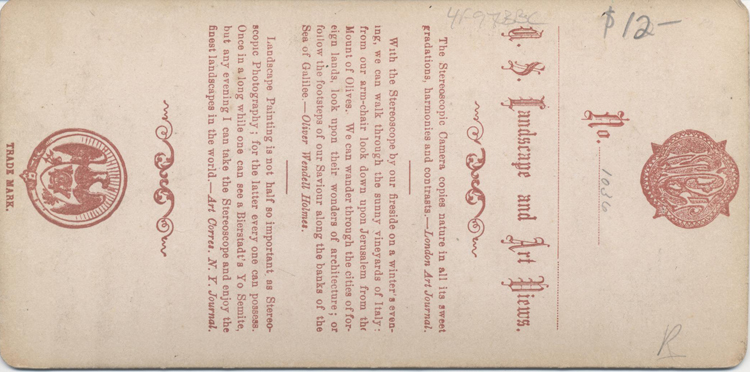 4F97BBC
$12-
No. 1036
U. S. Landscape and Art Views.
The Stereoscopic Camera copies nature in all its sweet
gradations, harmonies and contrasts.—London Art Journal.
With the Stereoscope by our fireside on a winter's even-
ing, we can walk through the sunny vineyards of Italy:
from our arm-chair look down upon Jerusalem from the
Mount of Olives. We can wander through the cities of for-
eign lands, look upon their wonders of architecture; or
follow the footsteps of our Saviour along the banks of the
Sea of Galilee.—Oliver Wendell Holmes.
Landscape Painting is not half so important as Stereo-
scopic Photography; for the latter every one can possess.
Once in a long while one can see a Bierstadt's Yo Semite,
but any evening I can take the Stereoscope and enjoy the
finest landscapes in the world.—Art Corres. N. Y. Journal.
TRADE MARK.
R